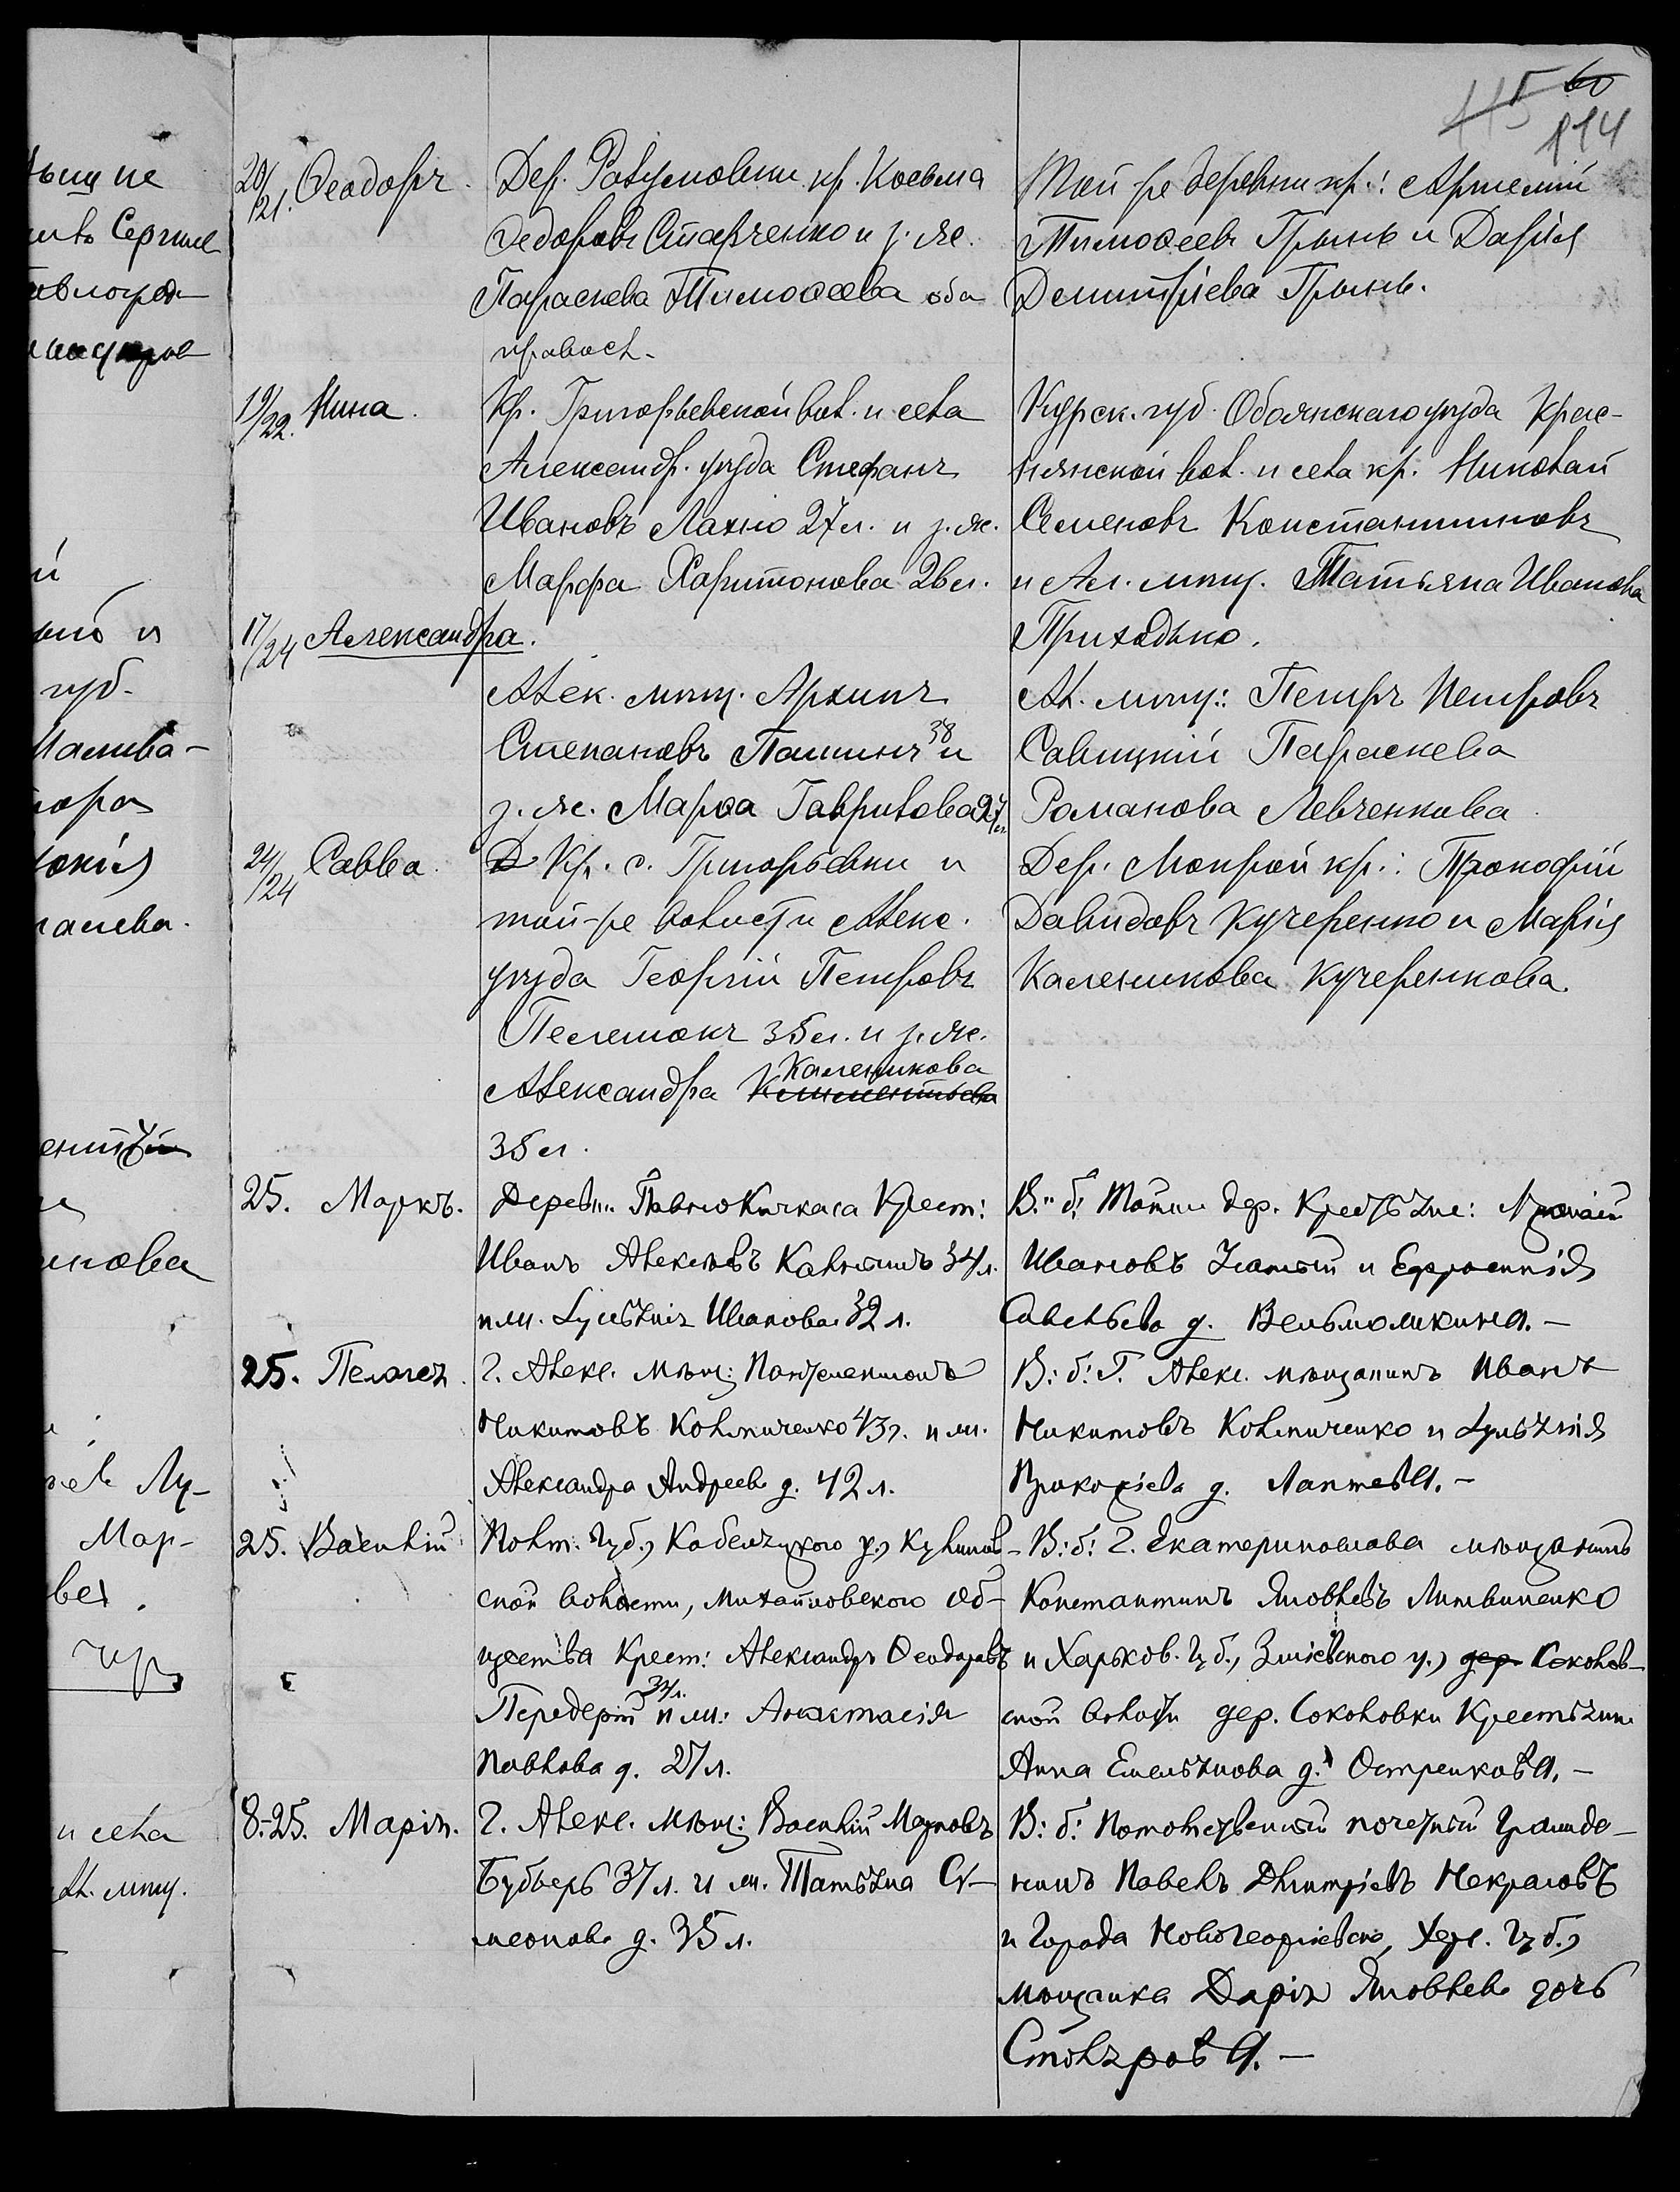 115 60
114
ьщ не
Сергие
авлоград-
20/21. Ѳеодоръ.
Дер. Разумовки кр. Косьма
Ѳедоровъ Старченко и з. же.
Параскева Тимоѳеева оба
правосл.
Той-же деревни кр.: Артемій
Тимоѳеевъ Грынь и Дарія
Димитріева Грынь.
19/22. Нина.
Кр. Григорьевской вол. и села
Александр. уѣзда Стефанъ
Ивановъ Лахно 27 л. и з. же.
Марфа Харитонова 28 л.
Курск. губ. Обоянскаго уѣзда Крас-
нянской вол. и села кр. Николай
Семеновъ Константиновъ
и Ал. мѣщ. Татьяна Иванова
Приходько.
17/24 Александра.
Алек. мѣщ. Архипъ
Степановъ Пашинъ 38 и
з. же. Марѳа Гаврилова 27 л.
Ал. мѣщ.: Петръ Петровъ
Савицкій Параскева
Романова Левченкова
24/24 Савва.
Кр. с. Григорьевки и
той-же волости Алекс.
уѣзда Георгій Петровъ
Пелешокъ 35 л. и з. же.
Каленикова
Александра Климентьева
35 л.
Дер. Мокрой кр.: Прокофій
Давидовъ Кучеренко и Марія
Каленикова Кучеренкова.
25. Маркъ.
Деревни Павло Кичкаса Крест:
Иванъ Алексѣевъ 34 л.
и ж. Евгенія Иванова 32 л.
В: б: Тойже дер. Крестьяне:
Ивановъ и Евфросинія
Савельева д. Вельмошкина.-
25. Пелагея.
Г. Алекс. мѣщ: Пантелеимонъ
Никитовъ Колтиченко 43 г. и ж.
Александра Андреева д. 42 л.
В: б: Г. Алекс. мѣщанинъ Иванъ
Никитовъ Колтиченко и
Прокофіева д. Лаптева.-
25. Василій
Полт: Губ., Кобелякского у.,
ской волости, Михайловского об-
щества Крест: Александръ Ѳеодоровъ
Передерій 34 л. и ж: Анастасія
Павлова д. 27 л.
В: б: Г. Екатеринослава мѣщанинъ
Константинъ Яковлевъ Литвиненко
и Харьков. Губ., Зміевского у., дер. Соколов-
ской волости дер. Соколовки Крестьянка
Анна Емельянова д. Остренкова.-
8.-25. Марія.
Г. Алекс. мѣщ: Василій Марковъ
Бубырь 37 л. и ж. Татьяна Си-
меонова д. 35 л.
В: б: Потомственный почетный Гражда-
нинъ Павелъ Дмитріевъ Некрасовъ
и Города Новогеоргіевска, Херс. Губ.,
мѣщанка Дарія Яковлева дочь
Столярова.-
губ.
Ма-
Лу-
Мар-
и села
Ал. мѣщ.